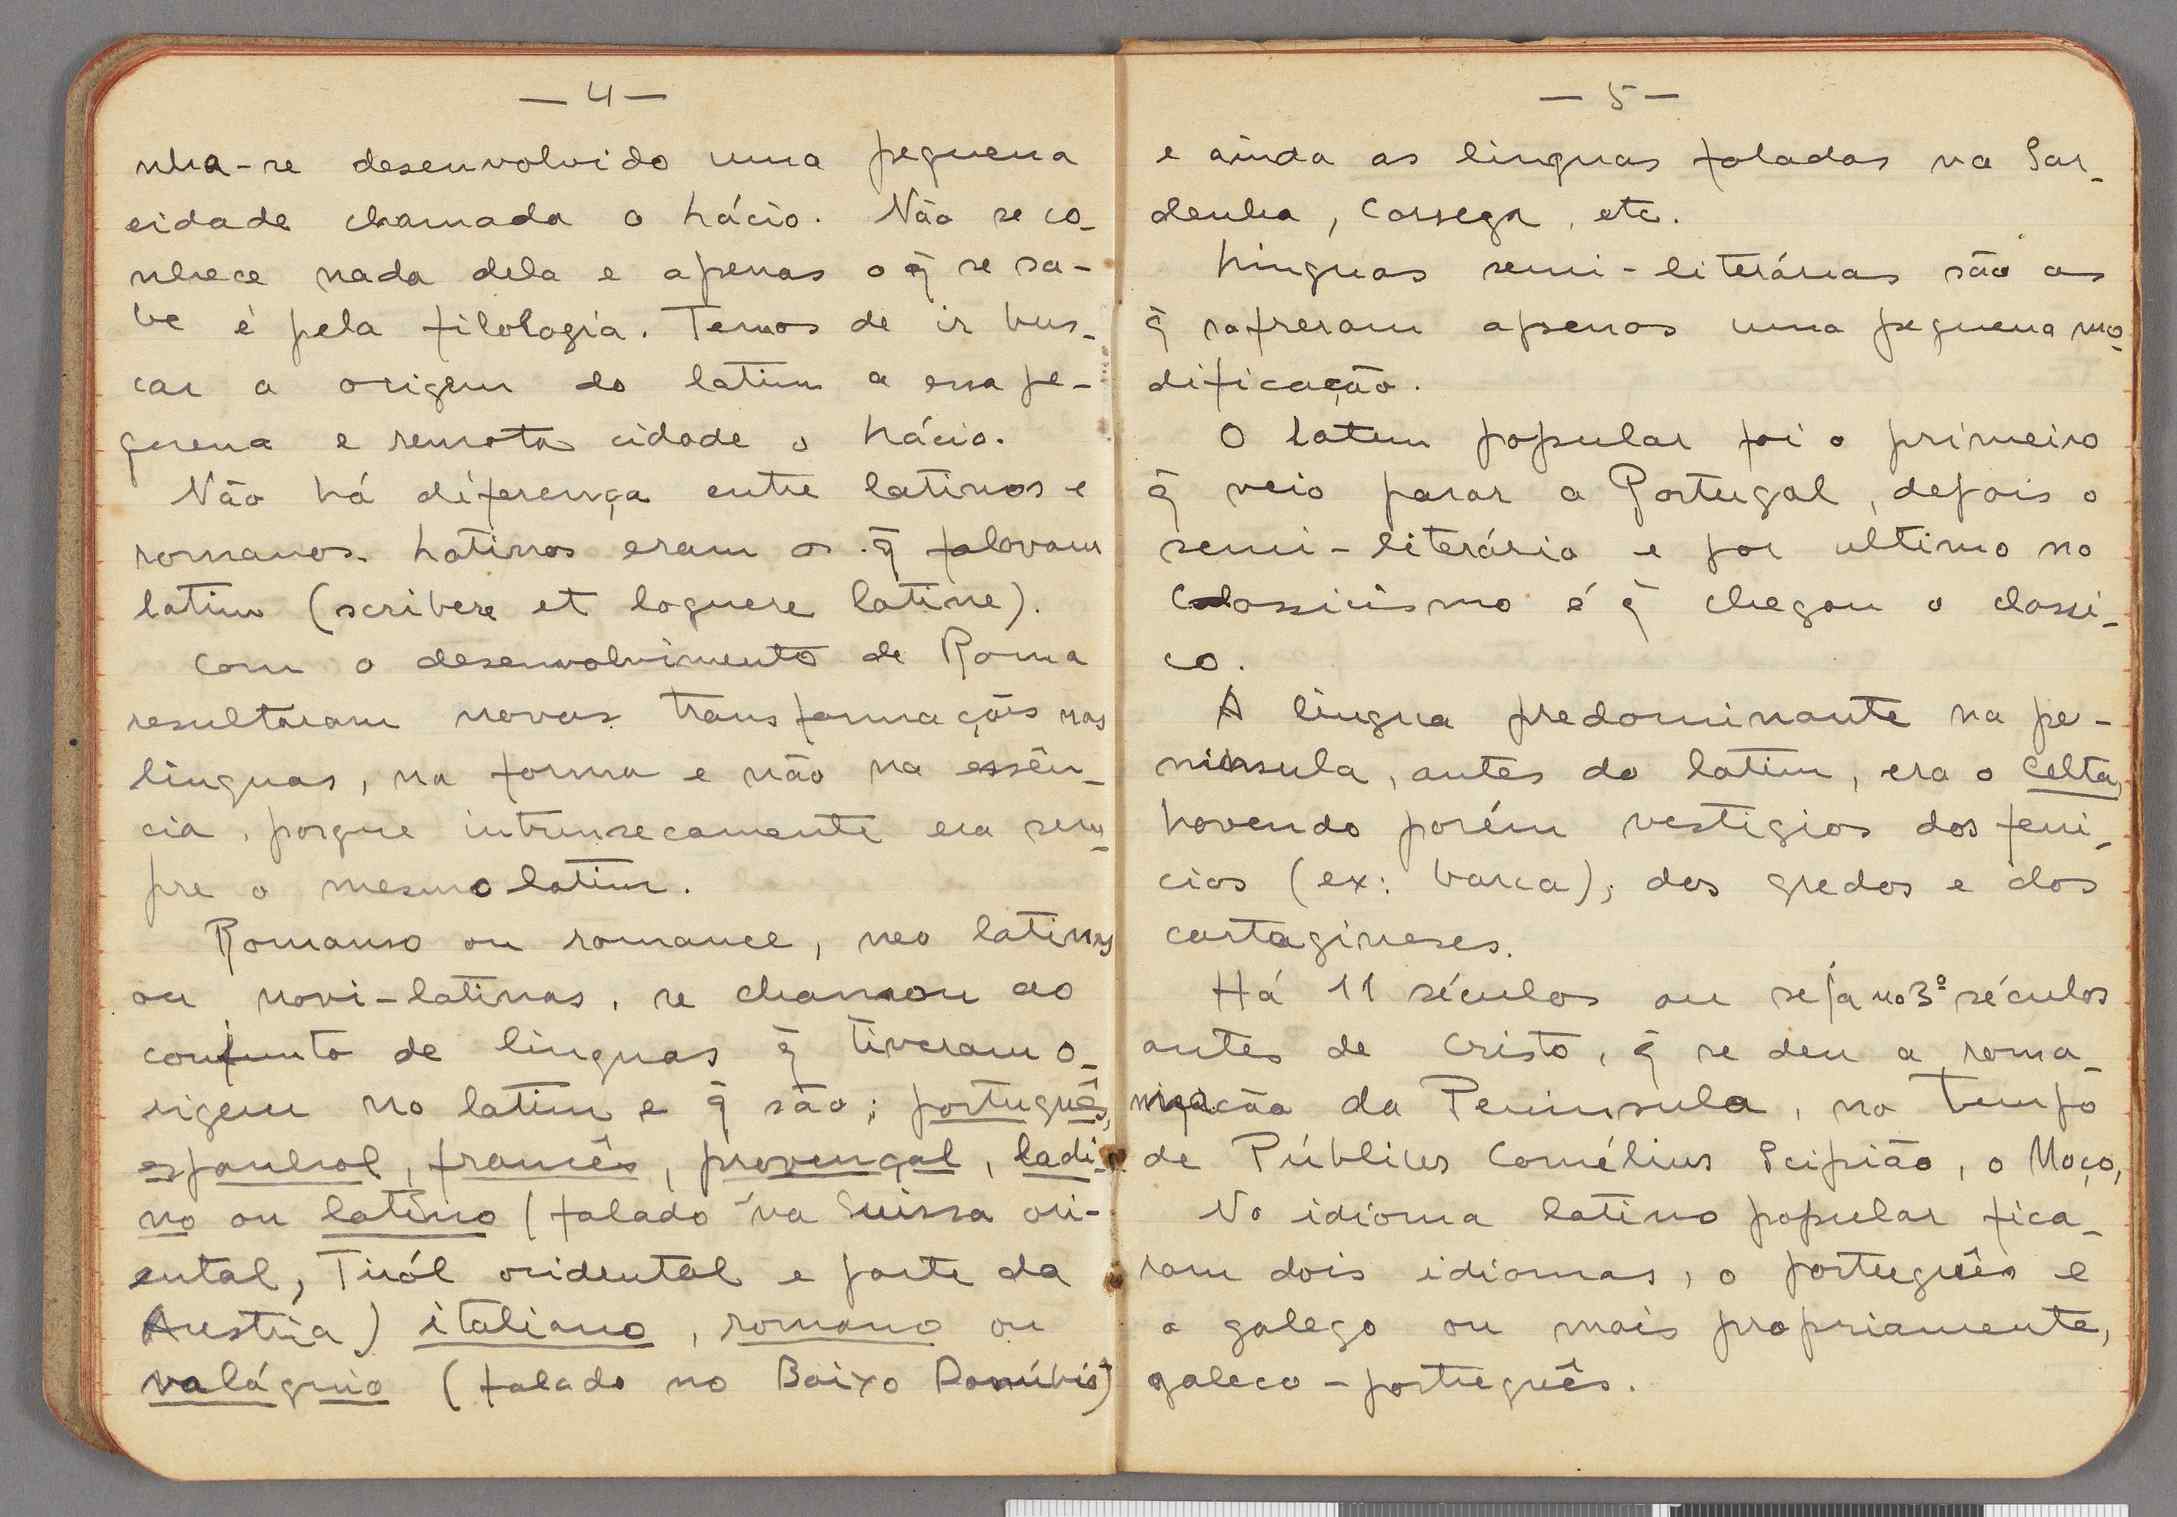 — 4 —
nha-se desenvolvido uma pequena
cidade chamada o Lácio. Não se co-
nhece nada dela e apenas o q̃ se sa-
be é pela filologia. Temos de ir bus-
car a origem do latim a essa pe-
quena e remota cidade o Lácio.
Não há diferença entre latinos e
romanos. Latinos eram os q̃ falavam
latim (scribere et loquere latine).
Com o desenvolvimento de Roma
resultaram novas transformações nas
linguas, na forma e não na essên-
cia, porque intrinsecamente era sem-
pre o mesmo latim.
Romanso ou romance, neo latinas
ou novi-latinas, se chamou ao
conjunto de linguas q̃ tiveram o-
rigem no latim e q̃ são; português,
espanhol, francês, provençal, ladi-
no ou latino (falado na Suissa ori-
ental, Tiról ocidental e parte da
Austria) italiano, romano ou
valáquio (falado no Baixo Danúbio)
— 5 —
e ainda as linguas faladas na Sar-
denha, Corsega, etc.
Linguas semi-literárias são as
q̃ sofreram apenas uma pequena mo-
dificação.
O latim popular foi o primeiro
q̃ veio parar a Portugal, depois o
semi-literário e por ultimo no
Classicismo é q̃ chegou o classi-
co.
A lingua predominante na pe-
ninsula, antes do latim, era o Celta,
havendo porém vestigios dos feni-
cios (ex: barca), dos gredos e dos
cartagineses.
Há 11 séculos ou seja no 3º séculos
antes de Cristo, q̃ se deu a roma-
nização da Peninsula, no tempo
de Públius Cornélius Scipião, o Moço,
No idioma latino popular fica-
ram dois idiomas, o português e
o galego ou mais propriamente,
galeco-português.